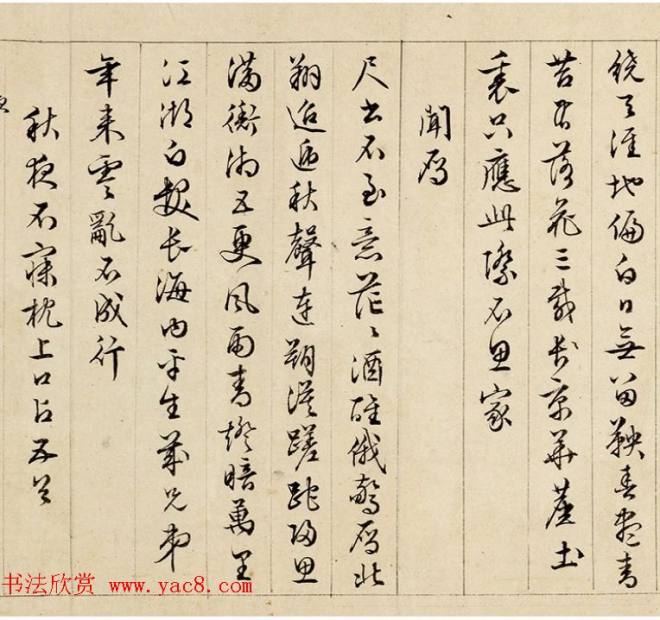 繞天涯地偏白日無留鞅春盡青
苔有落花三載京華塵土
裏只應此際不思家
聞雁
尺書不至意茫〻酒醒俄驚雁北
翔迢遞秋聲連朔漠蹉跎歸思
滿衡湘五更風雨青燈暗萬里
江湖白髮長海內平生幾兄弟
年來零亂不成行
秋夜不寐枕上口占五首
书法欣赏 www.yac8.com